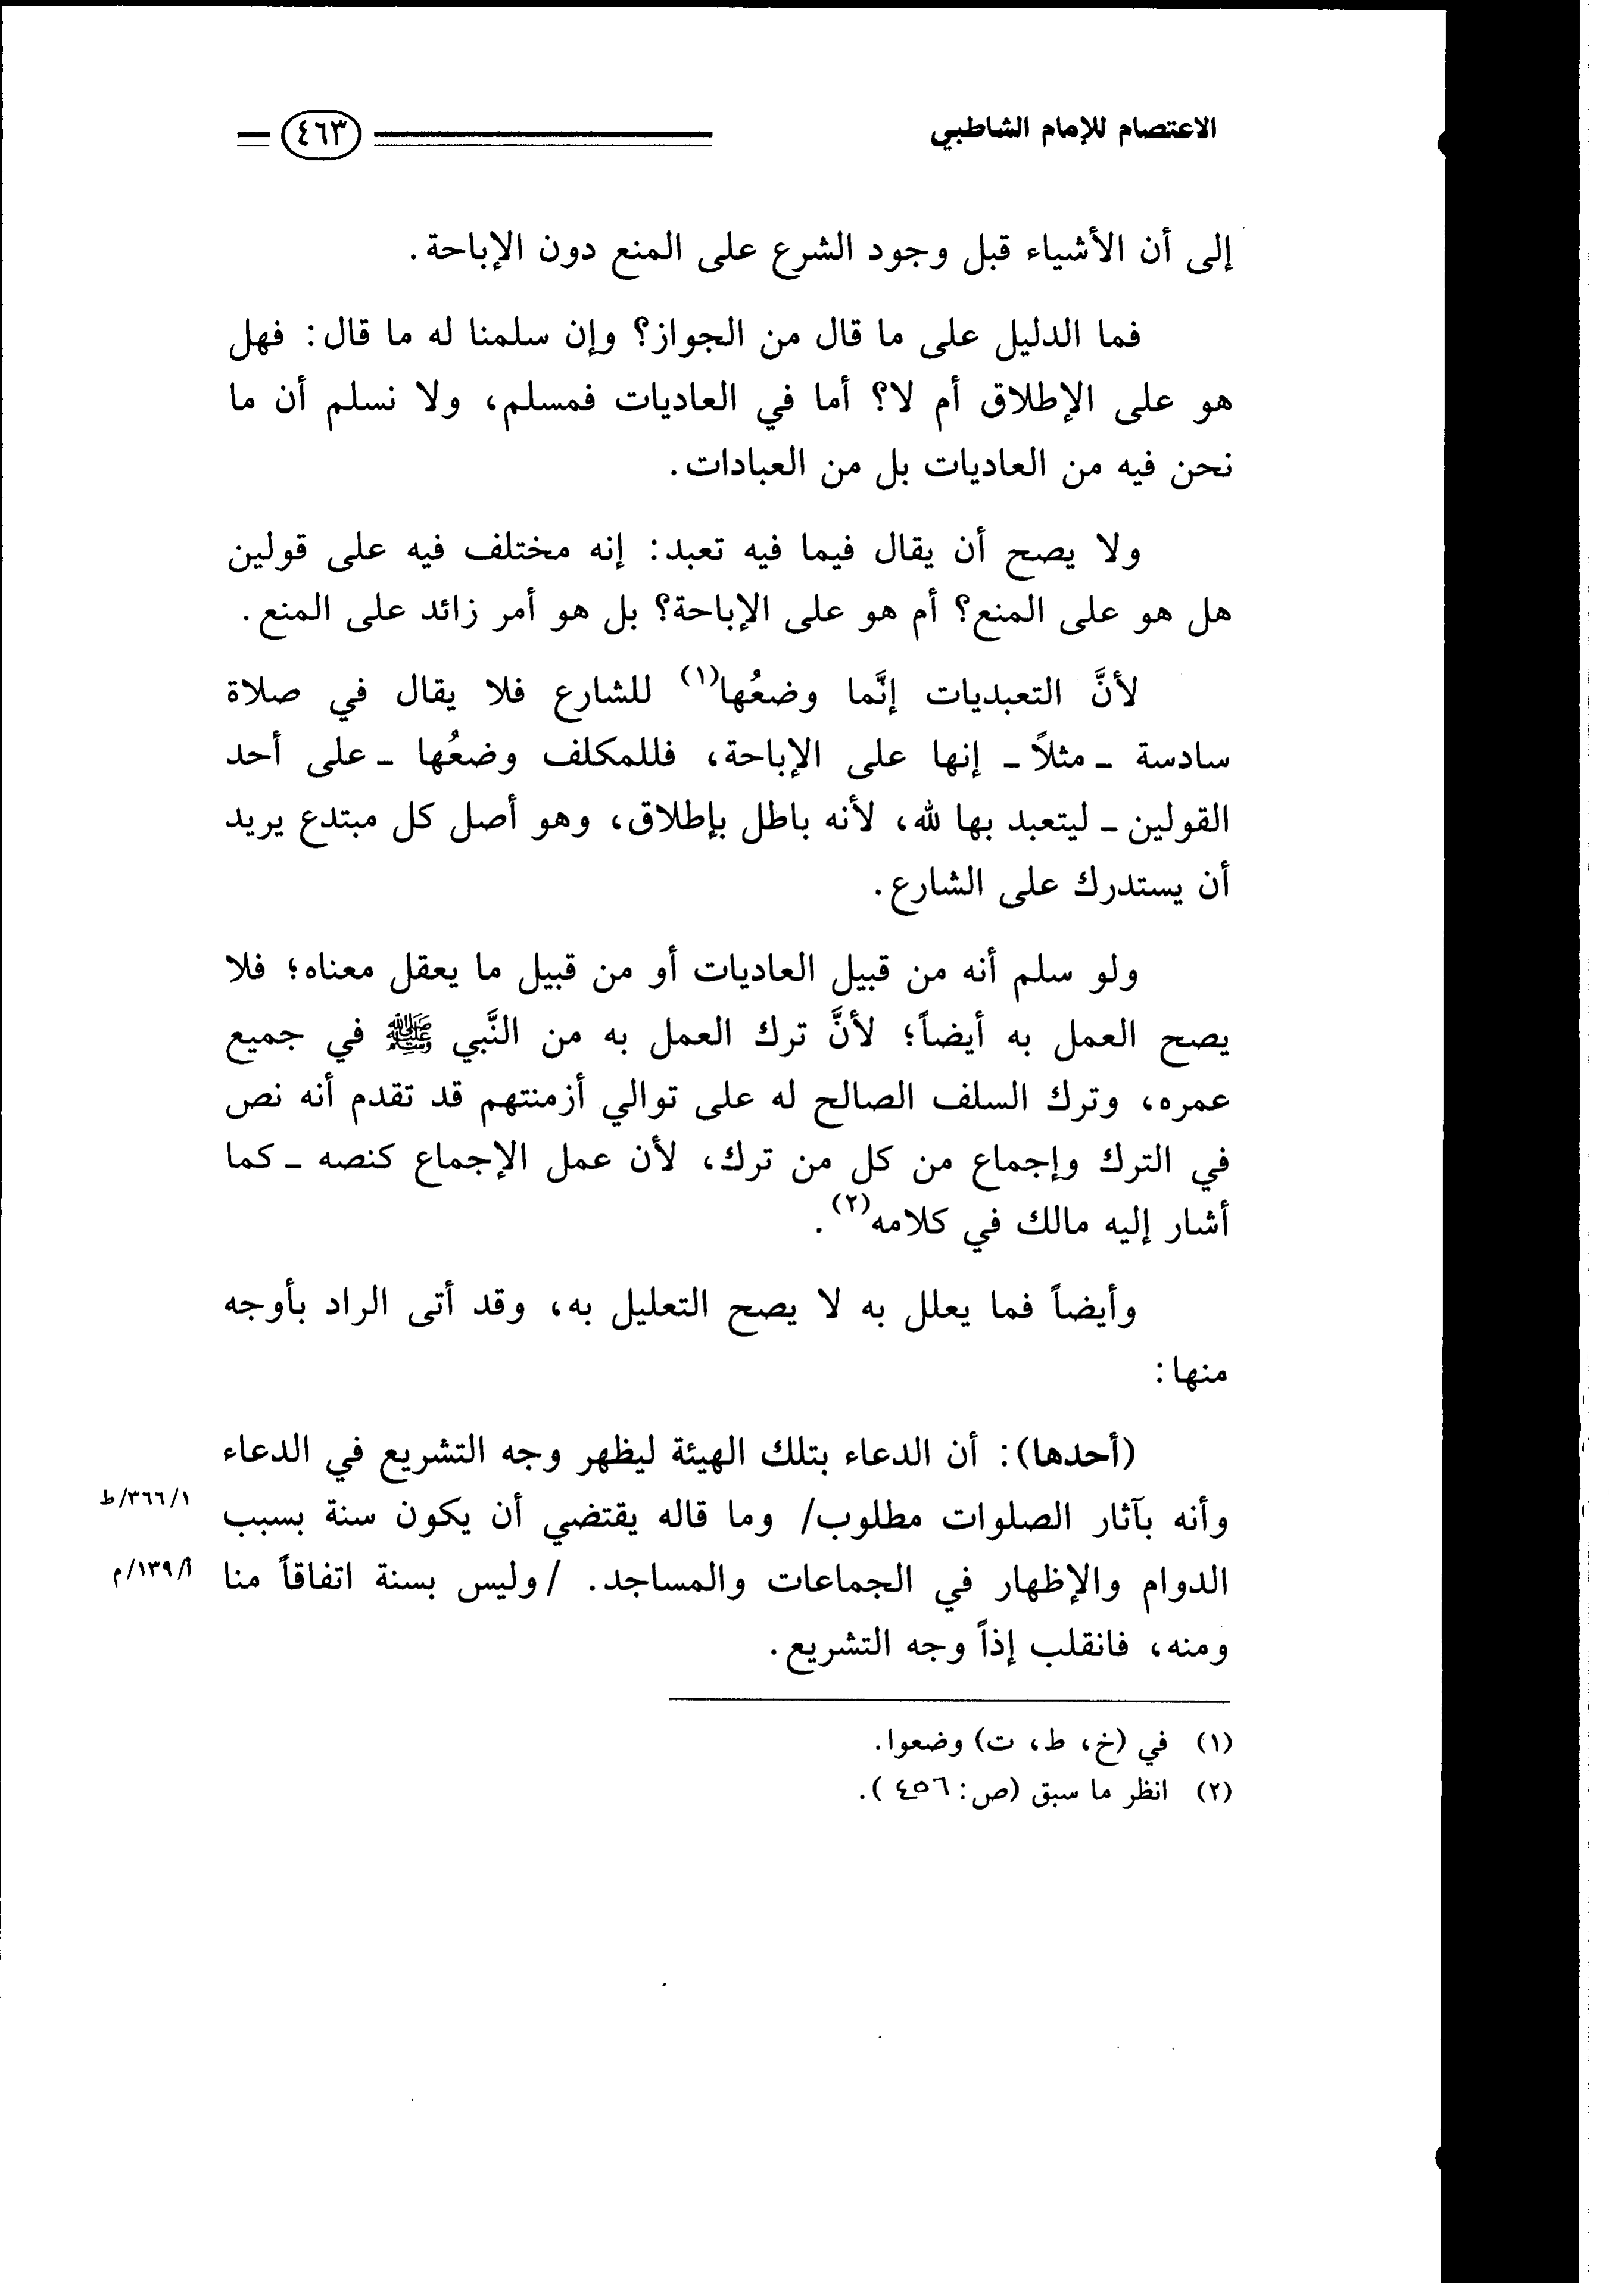 الاعتصام للإمام الشاطبي
٤٦٣
إلى أن الأشياء قبل وجود الشرع على المنع دون الإباحة.
فما الدليل على ما قال من الجواز؟ وإن سلمنا له ما قال: فهل
هو على الإطلاق أم لا؟ أما في العاديات فمسلم، ولا نسلم أن ما
نحن فيه من العاديات بل من العبادات.
ولا يصح أن يقال فيما فيه تعبد: إنه مختلف فيه على قولين
هل هو على المنع؟ أم هو على الإباحة؟ بل هو أمر زائد على المنع.
لأنَّ التعبديات إنَّما وضعُها(١) للشارع فلا يقال في صلاة
سادسة ـ مثلاً ـ إنها على الإباحة، فللمكلف وضعُها ـ على أحد
القولين ـ ليتعبد بها لله، لأنه باطل بإطلاق، وهو أصل كل مبتدع يريد
أن يستدرك على الشارع.
ولو سلم أنه من قبيل العاديات أو من قبيل ما يعقل معناه؛ فلا
يصح العمل به أيضاً؛ لأنَّ ترك العمل به من النَّبي ﷺ في جميع
عمره، وترك السلف الصالح له على توالي أزمنتهم قد تقدم أنه نص
في الترك وإجماع من كل من ترك، لأن عمل الإجماع كنصه ـ كما
أشار إليه مالك في كلامه(٢).
وأيضاً فما يعلل به لا يصح التعليل به، وقد أتى الراد بأوجه
منها:
(أحدها): أن الدعاء بتلك الهيئة ليظهر وجه التشريع في الدعاء
وأنه بآثار الصلوات مطلوب/ وما قاله يقتضي أن يكون سنة بسبب
١/٣٦٦/ط
الدوام والإظهار في الجماعات والمساجد. /وليس بسنة اتفاقاً منا
أ/١٣٩/م
ومنه، فانقلب إذاً وجه التشريع.
(١) في (خ، ط، ت) وضعوا.
(٢) انظر ما سبق (ص: ٤٥٦).